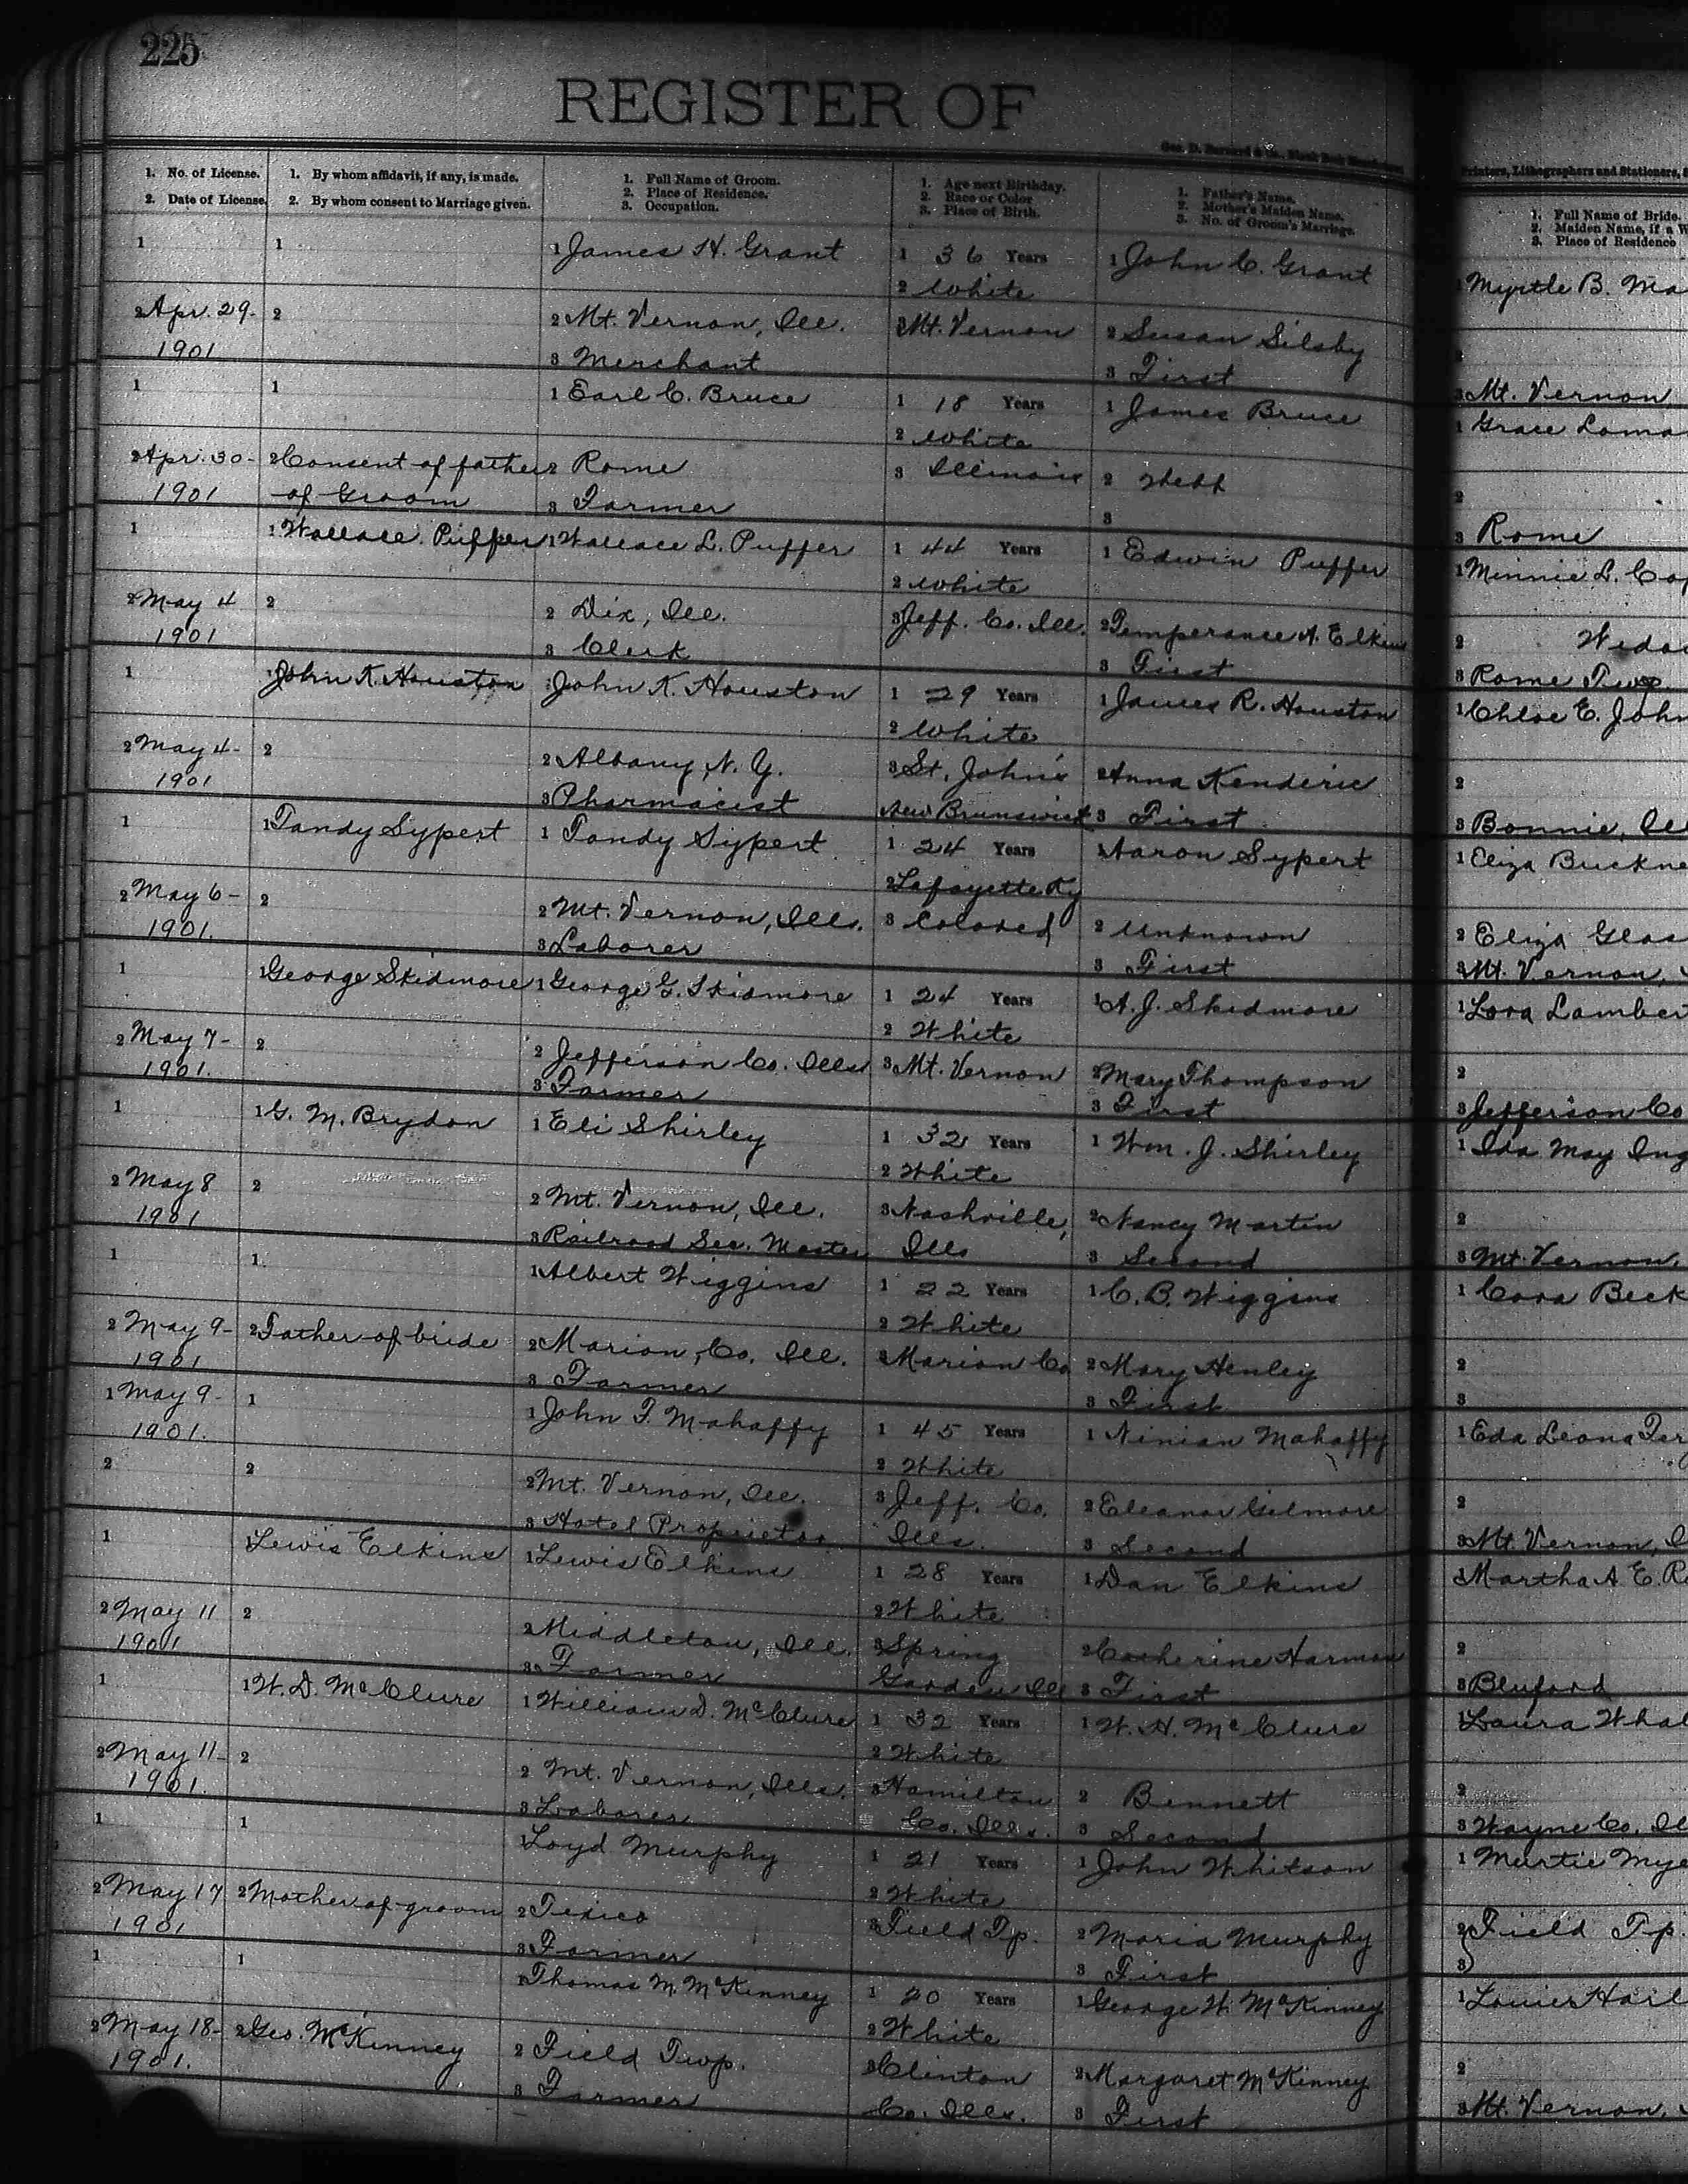 225
REGISTER OF
Geo. D. Barnard & Co., Blank Book
Printers, Lithographers and Stationers,
1. No. of License.
2. Date of License.
1. By whom affidavit, if any, is made.
2. By whom consent to Marriage given.
1. Full Name of Groom.
2. Place of Residence.
3. Occupation.
1. Age next Birthday.
2. Race or Color
3. Place of Birth.
1. Father's Name.
2. Mother's Maiden Name.
3. No. of Groom's Marriage.
1. Full Name of Bride.
2. Maiden Name, if a W
3. Place of Residence
1
2 Apr. 29-
1901
1
2
1 James H. Grant
2 Mt. Vernon, Ill.
3 Merchant
1 36 Years
2 White
3 Mt. Vernon
1 John C. Grant
2 Susan Silsby
3 First
1 Myrtle B. Ma
2
3 Mt. Vernon,
1
2 Apr. 30-
1901
1
2 Consent of father
of Groom
1 Earl C. Bruce
2 Rome
3 Farmer
1 18 Years
2 White
3 Illinois
1 James Bruce
2 Webb
3
1 Grace Loma
2
3 Rome
1
2 May 4
1901
1 Wallace Puffer
2
1 Wallace L. Puffer
2 Dix, Ill.
3 Clerk
1 44 Years
2 White
3 Jeff. Co. Ill.
1 Edwin Puffer
2 Temperance A. Elkins
3 First
1 Minnie L. Co
2 Wido
3 Rome Twp.
1
2 May 4-
1901
1 John K. Houston
2
1 John K. Houston
2 Albany, N. Y.
3 Pharmacist
1 29 Years
2 White
3 St. John's
New Brunswick
1 James R. Houston
2 Anna Kenderic
3 First
1 Chloe E. John
2
3 Bonnie, Ill
1
2 May 6-
1901.
1 Tandy Sypert
2
1 Tandy Sypert
2 Mt. Vernon, Ills.
3 Laborer
1 24 Years
2 Lafayette Ky
3 Colored
1 Aaron Sypert
2 Unknown
3 First
1 Eliza Buckne
2 Eliza Glas
3 Mt. Vernon,
1
2 May 7-
1901.
1 George Skidmore
2
1 George G. Skidmore
2 Jefferson Co. Ills
3 Farmer
1 24 Years
2 White
3 Mt. Vernon
1 A. J. Skidmore
2 Mary Thompson
3 First
1 Lora Lamber
2
3 Jefferson Co
1
2 May 8
1901
1 G. M. Brydon
2
1 Eli Shirley
2 Mt. Vernon, Ill.
3 Railroad Sec. Master
1 32 Years
2 White
3 Nashville,
Ills
1 Wm. J. Shirley
2 Nancy Martin
3 Second
1 Ida May Ing
2
3 Mt. Vernon,
1
2 May 9-
1901
1
2 Father of bride
1 Albert Wiggins
2 Marion, Co. Ill.
3 Farmer
1 22 Years
2 White
3 Marion Co
1 C. B. Wiggins
2 Mary Henley
3 First
1 Cora Beck
2
3
1 May 9-
1901.
2
1
2
1 John F. Mahaffy
2 Mt. Vernon, Ill.
3 Hotel Proprietor
1 45 Years
2 White
3 Jeff. Co.
Ills.
1 Ninian Mahaffy
2 Eleanor Gilmore
3 Second
1 Eda Leona Fer
2
3 Mt. Vernon, I
1
2 May 11
1901
1 Lewis Elkins
2
1 Lewis Elkins
2 Middleton, Ill.
3 Farmer
1 28 Years
2 White
3 Spring
Garden Ill
1 Dan Elkins
2 Catherine Harmon
3 First
1 Martha A. E. R
2
3 Bluford
1
2 May 11-
1901.
1 W. D. McClure
2
1 William D. McClure
2 Mt. Vernon, Ills.
3 Laborer
1 32 Years
2 White
3 Hamilton
Co. Ills.
1 W. H. McClure
2 Bennett
3 Second
1 Laura Whal
2
3 Wayne Co. Il
1
2 May 17
1901
1
2 Mother of groom
1 Loyd Murphy
2 Texico
3 Farmer
1 21 Years
2 White
3 Field Tp.
1 John Whitson
2 Maria Murphy
3 First
1 Murtie Mye
2 Field Tp.
3
1
2 May 18-
1901.
1
2 Geo. McKinney
1 Thomas M. McKinney
2 Field Twp.
3 Farmer
1 20 Years
2 White
3 Clinton
Co. Ills.
1 George W. McKinney
2 Margaret McKinney
3 First
1 Hail
2
3 Mt. Vernon,